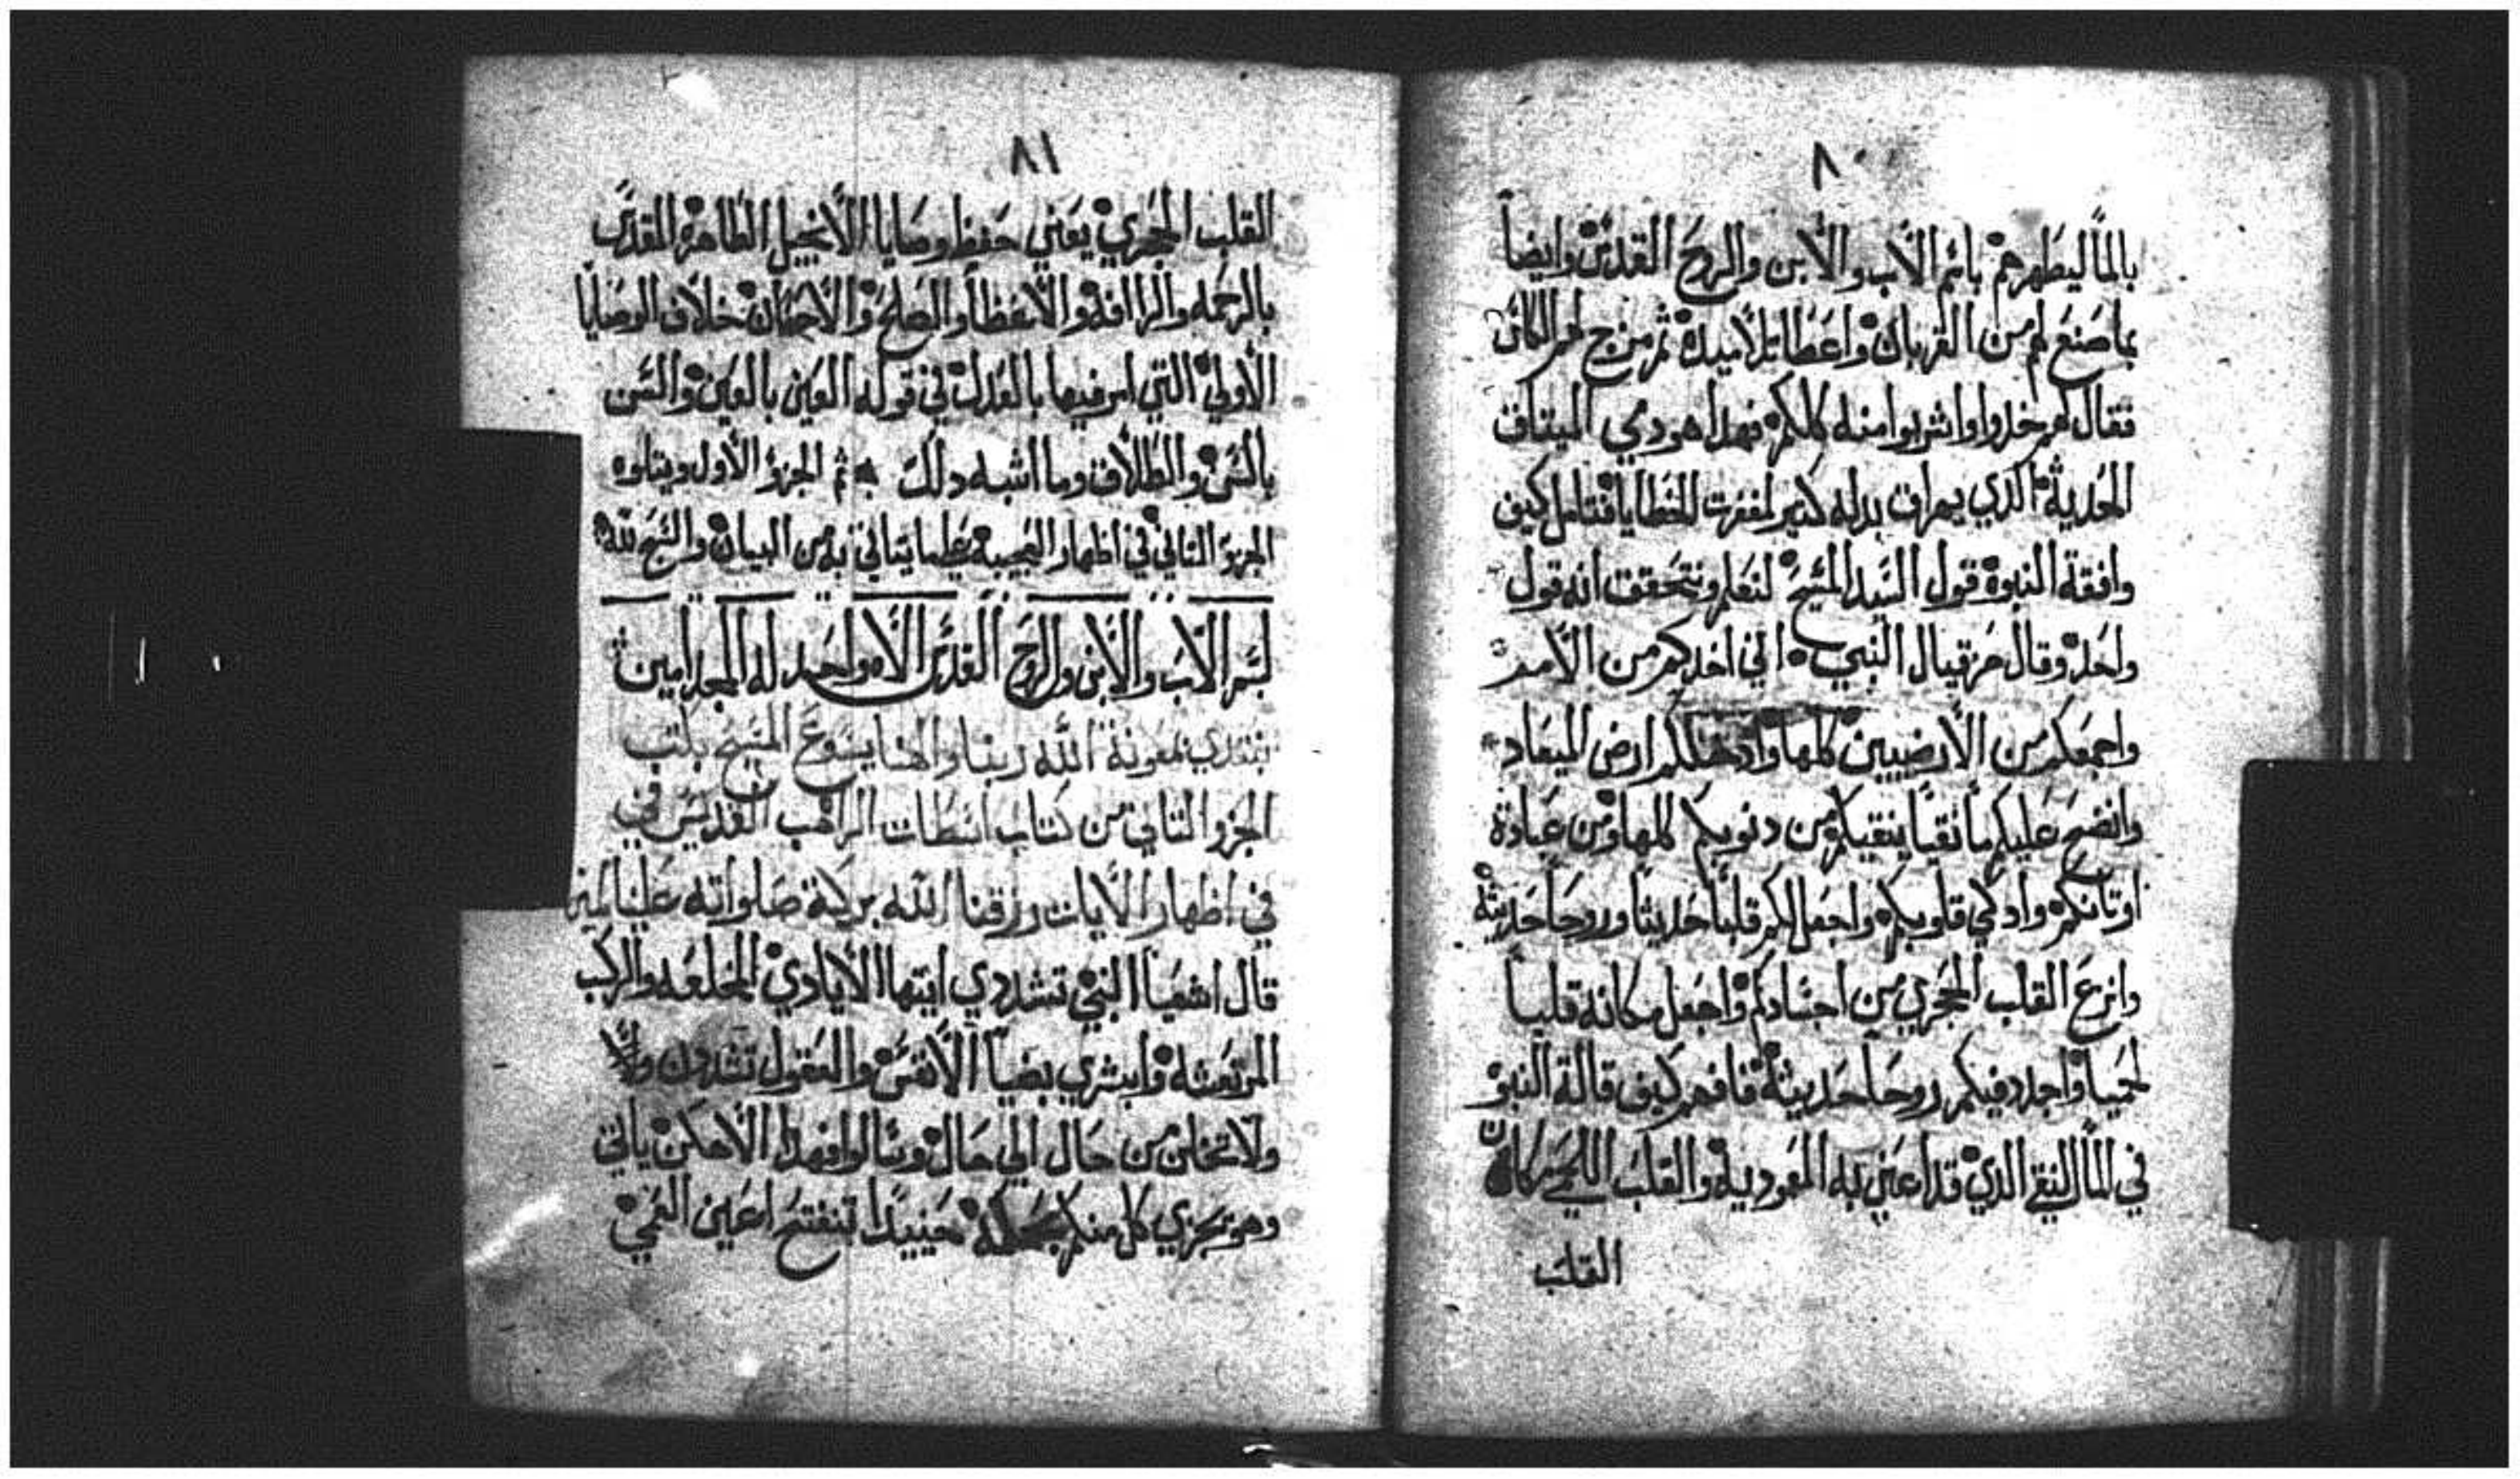 ٨٠
بالماً ليطهرهم باسم الأب والأبن والروح القدس وايضاً
بما صنع لهم من القربان واعطا تلاميده ثم مزج لهم الكاس
فقال لهم خدوا واشربوا منه كلكم فهدا هو دمي الميتاق
الحديثة الدي يهراق بدله كتير لمغفرت الخطايا فتامل كيف
وافقة النبوة قول السيد المسيح لنعلم ونتحقق انه قول
واحد وقال حزقيال النبي اني اخدكم من الأمم
واجمعكم من الأرضيين كلها وادخلكم ارض الميعاد
وانضح عليكم ماً نقياً ينقيكم من دنوبكم كلها ومن عبادة
اوتانكم وادكي قلوبكم واجعل لكم قلباً حديثاً وروحاً حديثة
وانزع القلب الحجري من اجسادكم واجعل مكانه قلباً
لحمياً واجدد فيكم روحاً حديثة فافهم كيف قالة النبوة
في الماً النقي الدي قد اعني به المعودية والقلب اللحمي مكان
القلب
٨١
القلب الحجري يعني حفظ وصايا الأنجيل الطاهرة المقدس
بالرحمه والراافة والأتعظاً والصلح والأحسان خلاف الوصايا
الأولي التي امر فيها بالعدل في قوله العين بالعين والسن
بالسن والطلاق وما اشبه دلك تم الجزو الأول ويتلوه
الجزو التاني في اظهار العجيبة عظما يتاني به من البيان والشرح لله
بسم الأب والأبن والروح القدس الأه واحد له المجد امين
نبتدي بمعونة الله ربنا والهنا يسوع المسيح بكتب
الجزو التاني من كتاب انسطاس الراهب القديس في
في اظهار الأيات رزقنا الله بركة صلواته علينا امين
قال اشعيا النبي تشددي ايتها الأيادي المخلعه والركب
المرتعشه وابشري بضياً الأنفس والعقول تشددن ولا
ولا تتخلن من حال الي حال وتنالوا فهدا الأهكن ياتي
وهو يجزي كل منكم بحكمة حينيداً تنفتح اعين العمي